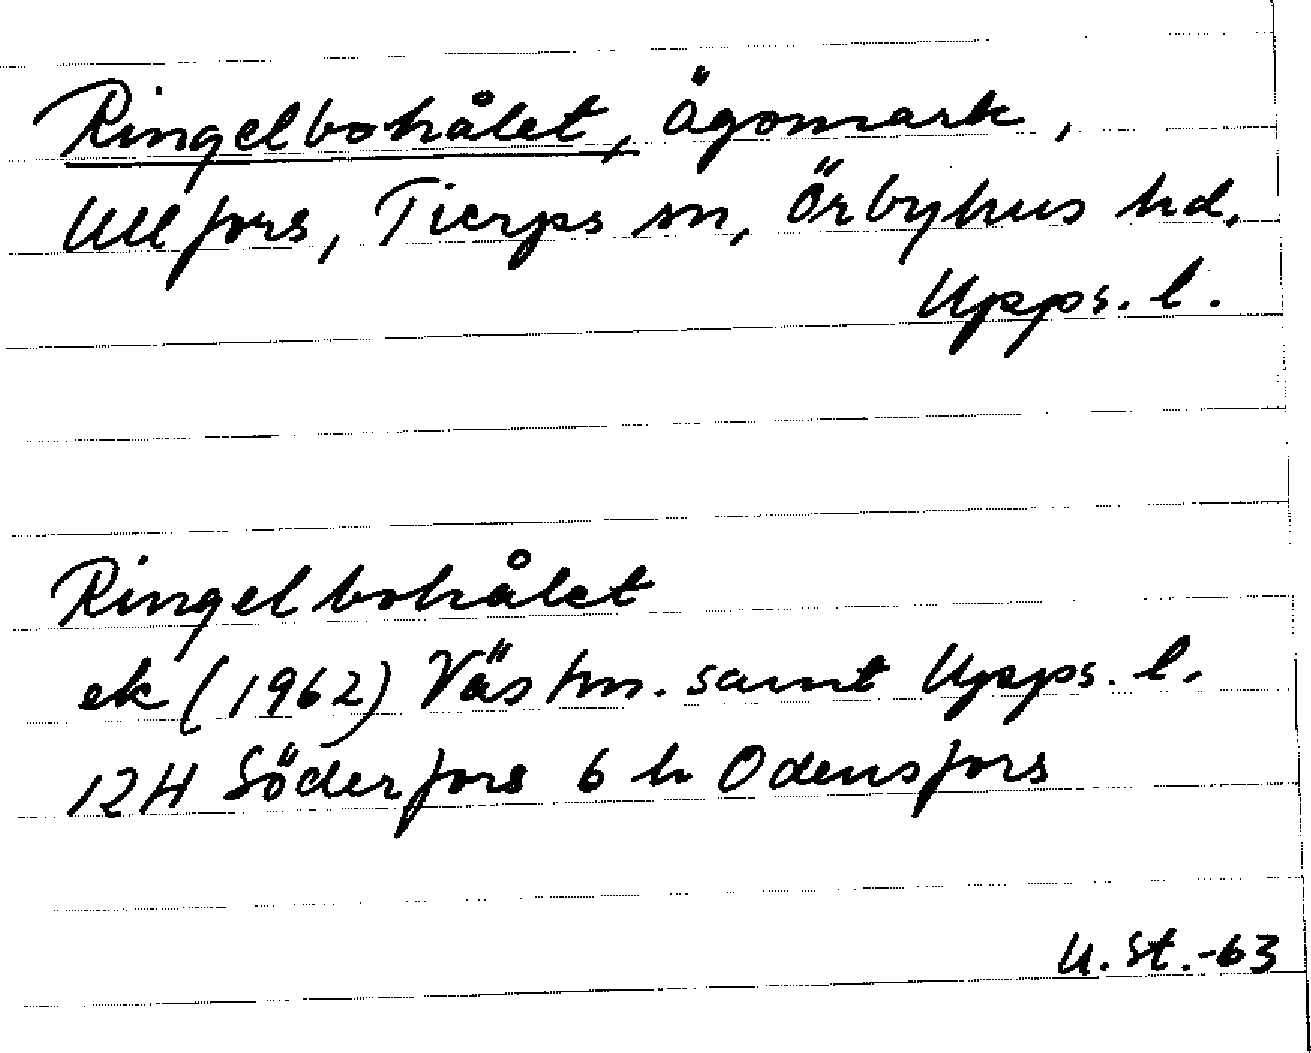 Ringelbohålet, ägomark,
Ullfors, Tierps sn, Örbyhus hd,
Upps. l.
Ringelbohålet
ek (1962) Västm. samt Upps. l.
12H Söderfors 6 h Odensfors
U. St.-63